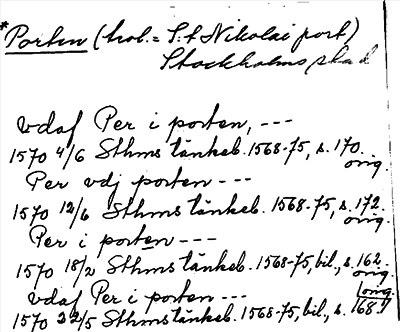 *Porten (trol. = S:t Nikolai port)
Stockholms stad
vdaf Per i porten, ---
1570 4/6 Sthms tänkeb. 1568-75, s. 170.
orig.
Per vdj porten ---
1570 12/6 Sthms tänkeb. 1568-75, s. 172.
orig.
Per i porten ---
1570 18/2 Sthms tänkeb. 1568-75, bil., s. 162.
orig.
vdaf Per i porten ---
1570 22/5 Sthms tänkeb. 1568-75, bil., s. 168
orig.